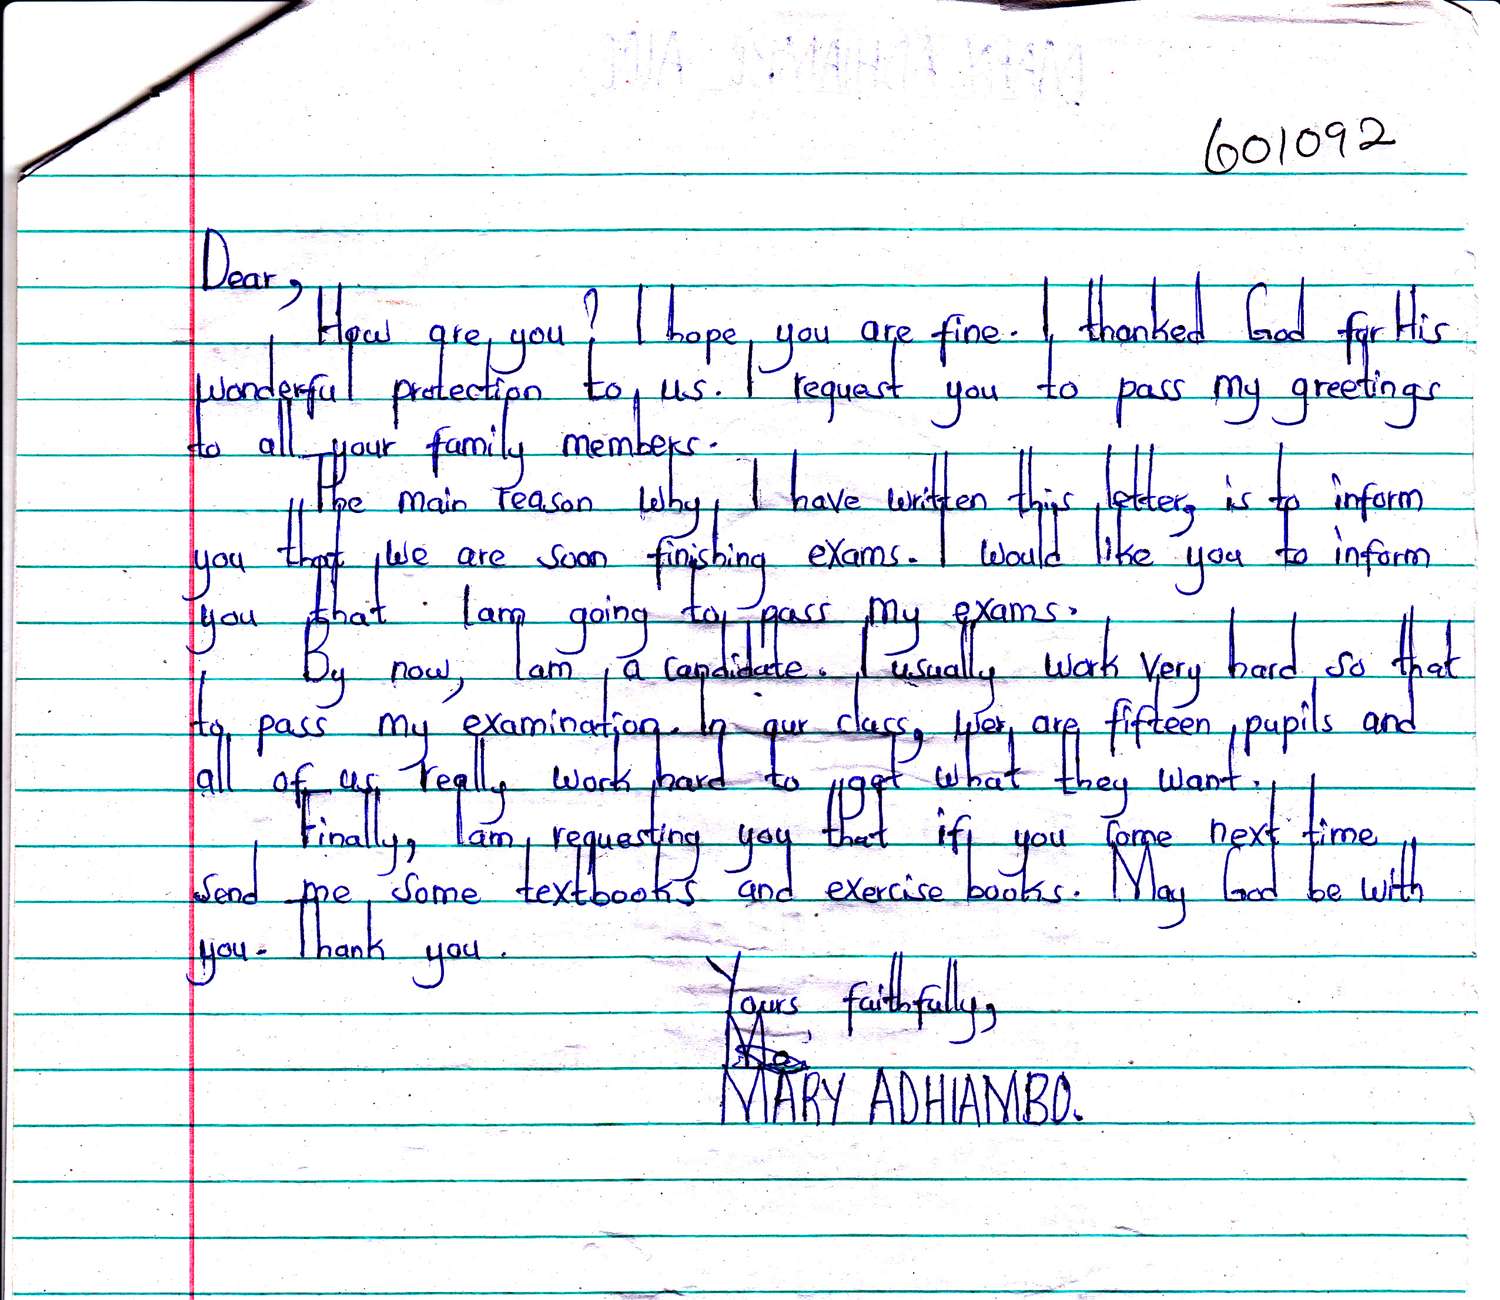 601092
Dear,
How are you? I hope you are fine. I thanked God for His
wonderful protection to us. I request you to pass my greetings
to all your family members.
The main reason why I have written this letter, is to inform
you that we are soon finishing exams. I would like you to inform
you that I am going to pass my exams.
By now, I am a candidate. I usually work very hard so that
to pass my examination. In our class, wer are fifteen pupils and
all of us really work hard to get what they want.
Finally, I am requesting you that if you come next time
send me some textbooks and exercise books. May God be with
you. Thank you.
Yours faithfully,
MARY ADHIAMBO.